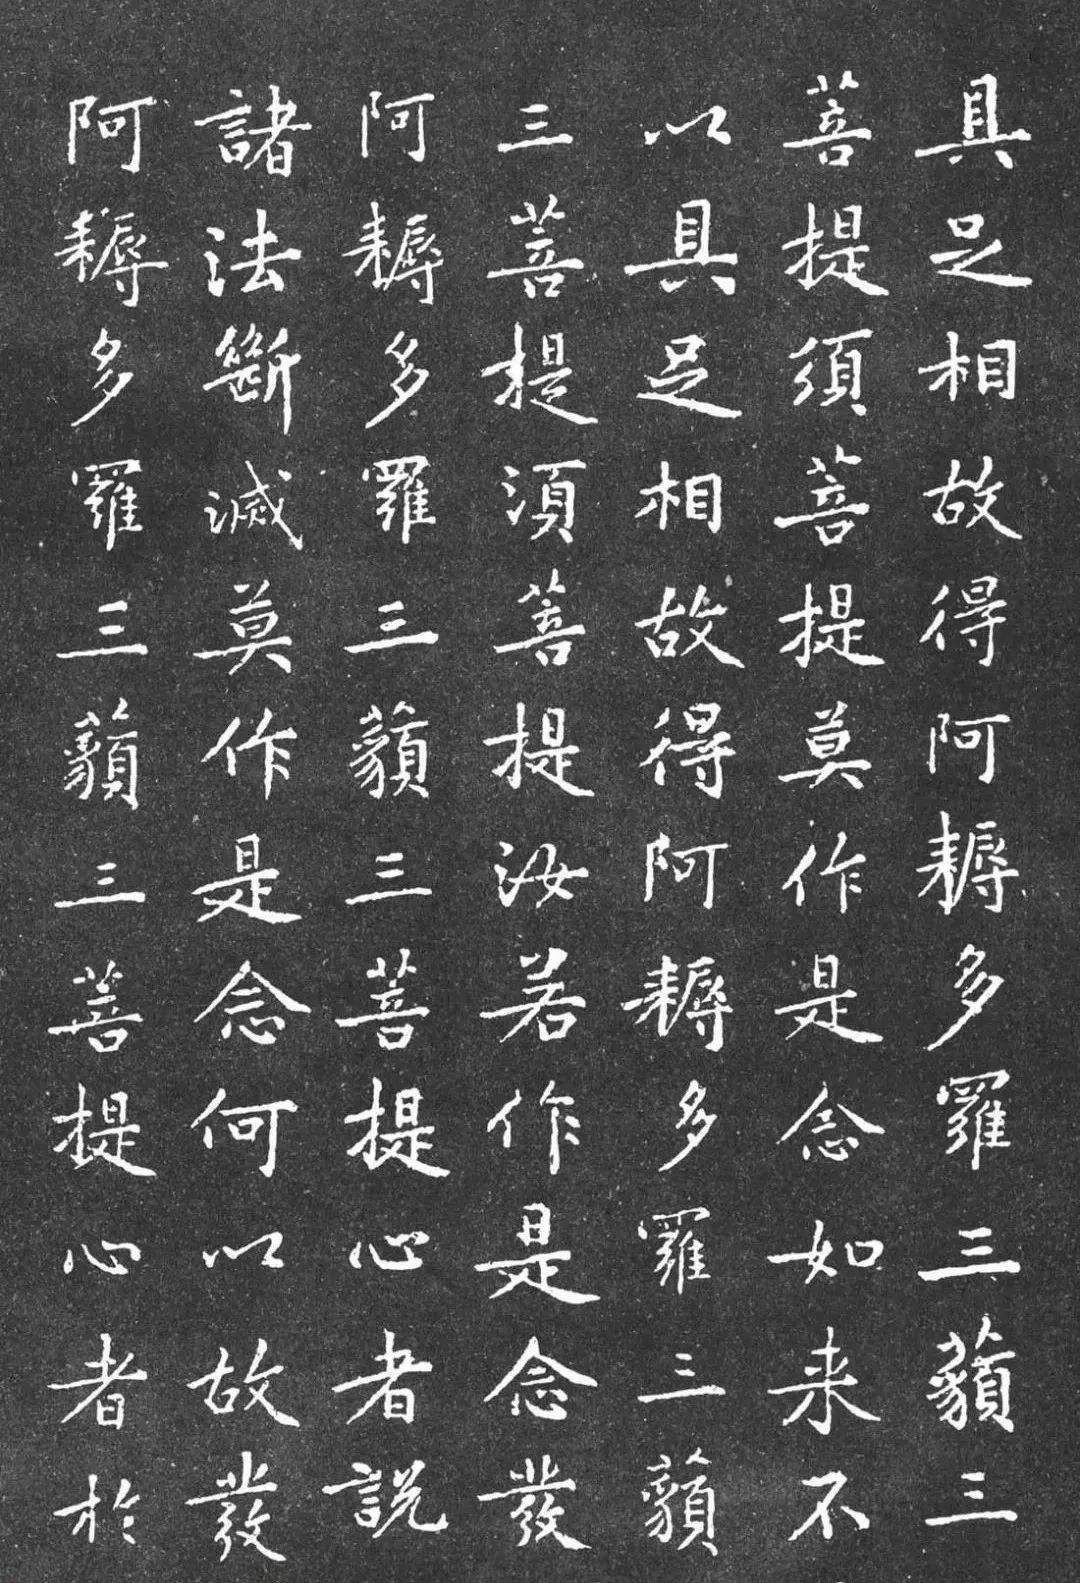 具足相故得阿耨多羅三藐三
菩提須菩提莫作是念如来不
以具足相故得阿耨多羅三藐
三菩提須菩提汝若作是念發
阿耨多羅三藐三菩提心者說
諸法斷滅莫作是念何以故發
阿耨多羅三藐三菩提心者於